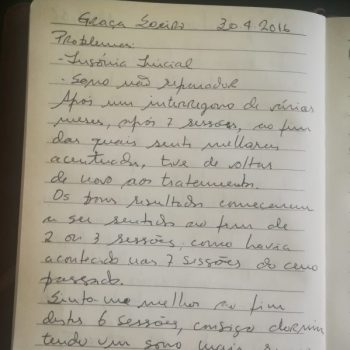 Graça Soeiro 20.4.2016
Problemas:
- Insónia Inicial
- Sono não reparador
Após um interregno de várias
meses, após 7 sessões, ao fim
das quais senti melhoras
acentuadas, tive de voltar
de novo aos tratamentos.
Os bons resultados começaram
a ser sentidos ao fim de
2 ou 3 sessões, como havia
acontecido nas 7 sessões do ano
passado.
Sinto-me melhor ao fim
destas 6 sessões, consigo dormir
tendo um sono mais